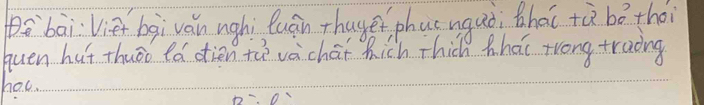 Đề bài: Viết bài văn nghị luận thuyết phục người khác từ bỏ thói
quen hút thuốc lá điện tử và chất kích thích khác trong trường
học.